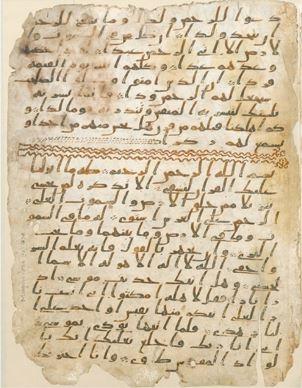 دعوا للرحمن ولدا وما ينبغي للرحمن
ان يتخذ ولدا ان كل من في السموت و
الارض الا اتي الرحمن عبدا لقد احصيهم
وعدهم عدا وكلهم اتيه يوم القيمه
فردا ان الذين امنوا وعملوا الصلحت
سيجعل لهم الرحمن ودا فانما يسرنه
بلسنك لتبشر به المتقين وتنذر به قوما لدا و
كم اهلكنا قبلهم من قرن هل تحس منهم من احد او
تسمع لهم ركزا
بسم الله الرحمن الرحيم طه ما انزلنا
عليك القران لتشقى الا تذكره لمن يخشى
تنزيلا ممن خلق الارض والسموت العلى
الرحمن على العرش استوى له ما في السمو
ت وما في الارض وما بينهما وما تحت
الثرى وان تجهر بالقول فانه يعلم السر
واخفى الله لا اله الا هو له الاسما ا
لحسنى وهل اتيك حديث موسى اذ
را نارا فقل لاهله امكثوا اني انست نا
را لعلي اتيكم منها بقبس او اجد على ا
لنار هدى فلما اتيها نودي يموسى
اني انا ربك فاخلع نعليك انك با
لواد المقدس طوى وانا اخترتك